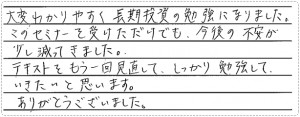 大変わかりやすく長期投資の勉強になりました。
このセミナーを受けただけでも、今後の不安が
少し減ってきました。
テキストをもう一回見直して、しっかり勉強して
いきたいと思います。
ありがとうございました。